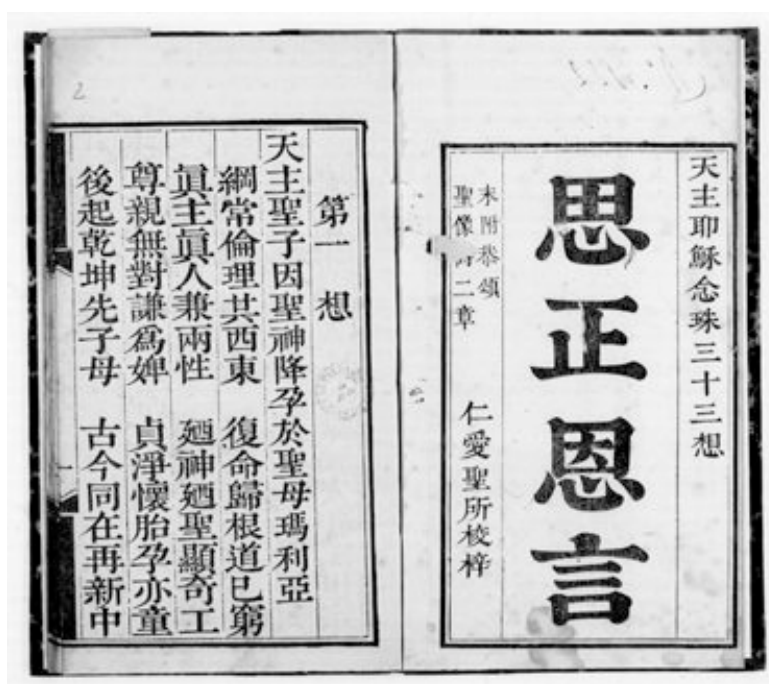 天主耶穌念珠三十三想
思正恩言
末附恭頌
聖像二章
仁愛聖所校梓
2
第一想
天主聖子因聖神降孕於聖母瑪利亞
綱常倫理共西東 復命歸根道已窮
眞主眞人兼兩性 廼神廼聖顯奇工
尊親無對謙爲婢 貞淨懷胎孕亦童
後起乾坤先子母 古今同在再新中
一